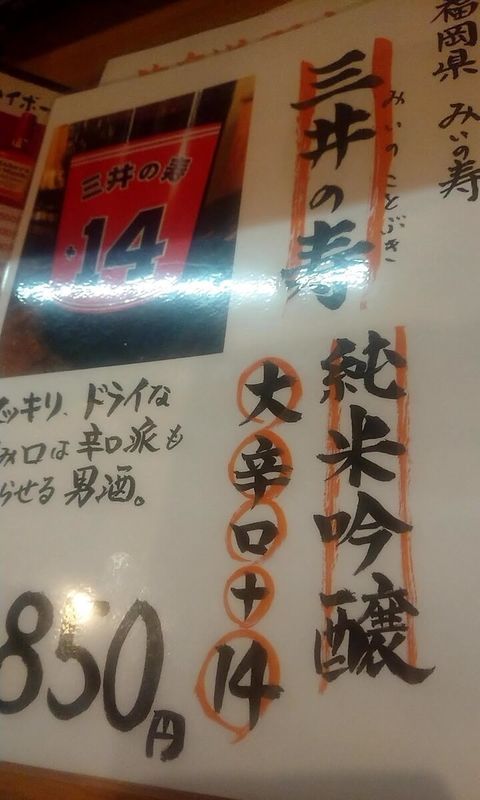 福岡県 みいの寿
みいのことぶき
三井の寿
純米吟醸
大辛口+14
三井の寿
+14
ッキリ、ドライな
口は辛口派も
らせる男酒。
850円
イボー